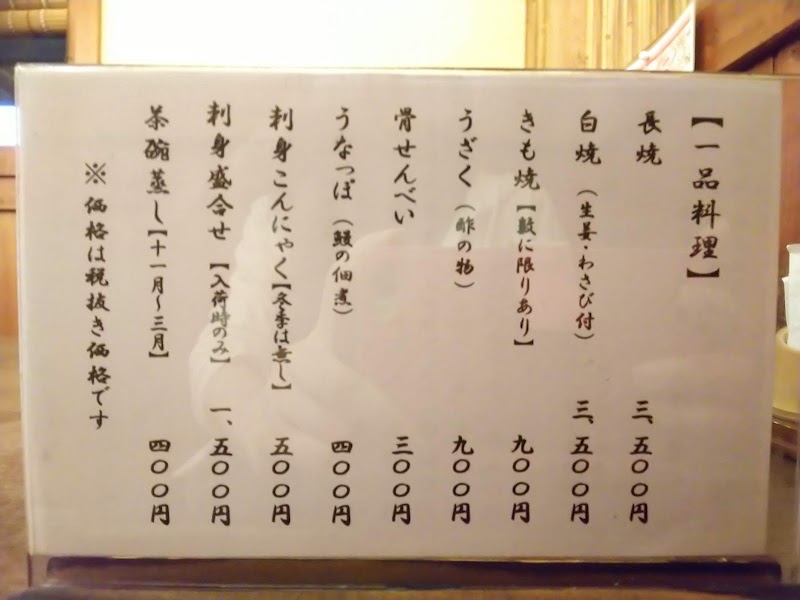 【一品料理】
長焼 三、五〇〇円
白焼（生姜・わさび付） 三、五〇〇円
きも焼【数に限りあり】 九〇〇円
うざく（酢の物） 九〇〇円
骨せんべい 三〇〇円
うなっぱ（鰻の佃煮） 四〇〇円
刺身こんにゃく【冬季は無し】 五〇〇円
刺身盛合せ【入荷時のみ】 一、五〇〇円
茶碗蒸し【十一月～三月】 四〇〇円
※価格は税抜き価格です